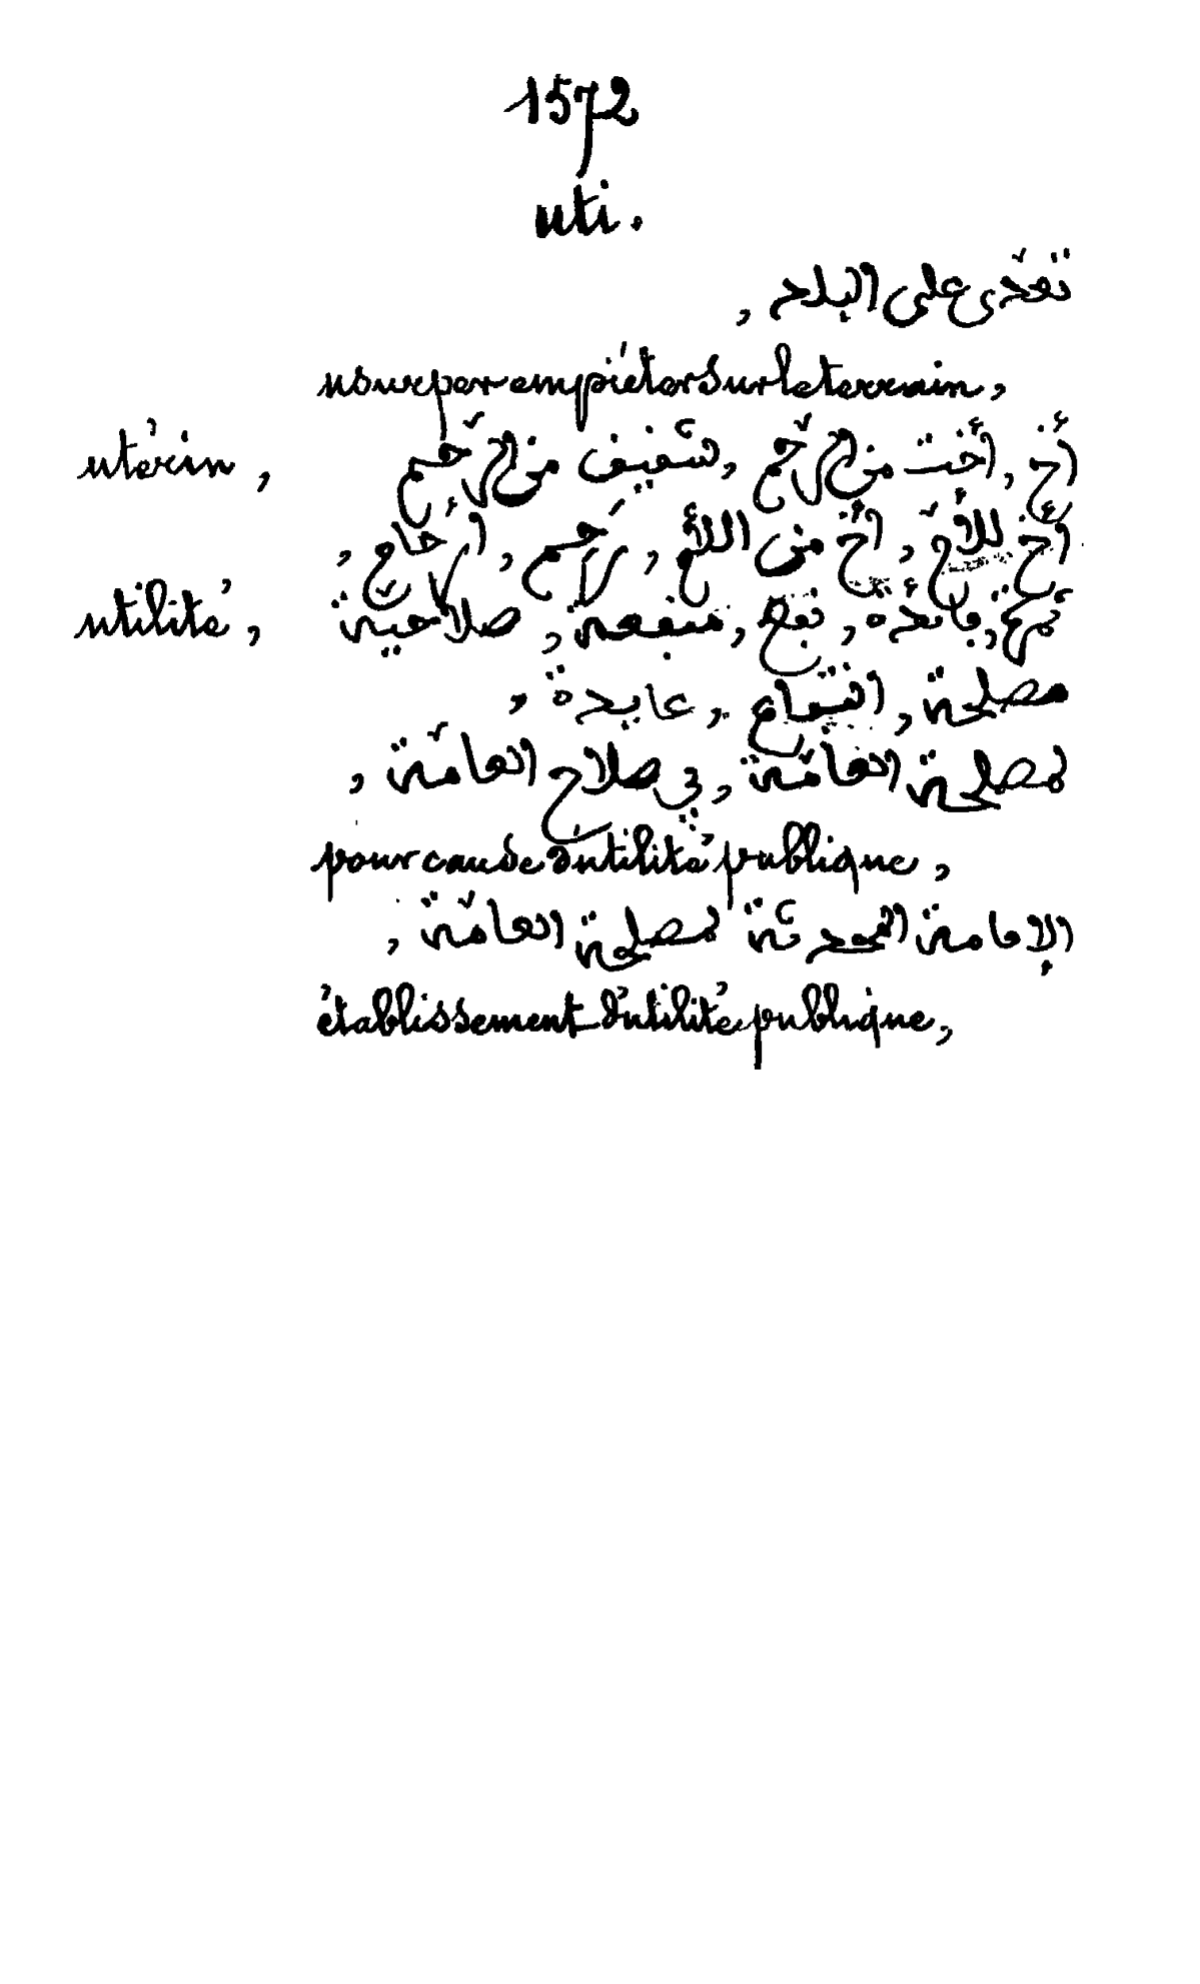 1572
uti.
تعدّى على البلاد,
usurper empiéter sur le terrain,
utérin, أخ, أخت من الرّحم, شقيق من الرّحم
أخ للأمّ, أخ من الأم, رحم, أرحام,
utilité, ثمرة, فائدة, نفع, منفعة, صلاحية
مصلحة, انتفاع, عايدة,
لمصلحة العامّة, في صلاح العامّة,
pour cause d'utilité publique,
الإقامة المحدثة لمصلحة العامّة,
établissement d'utilité publique,